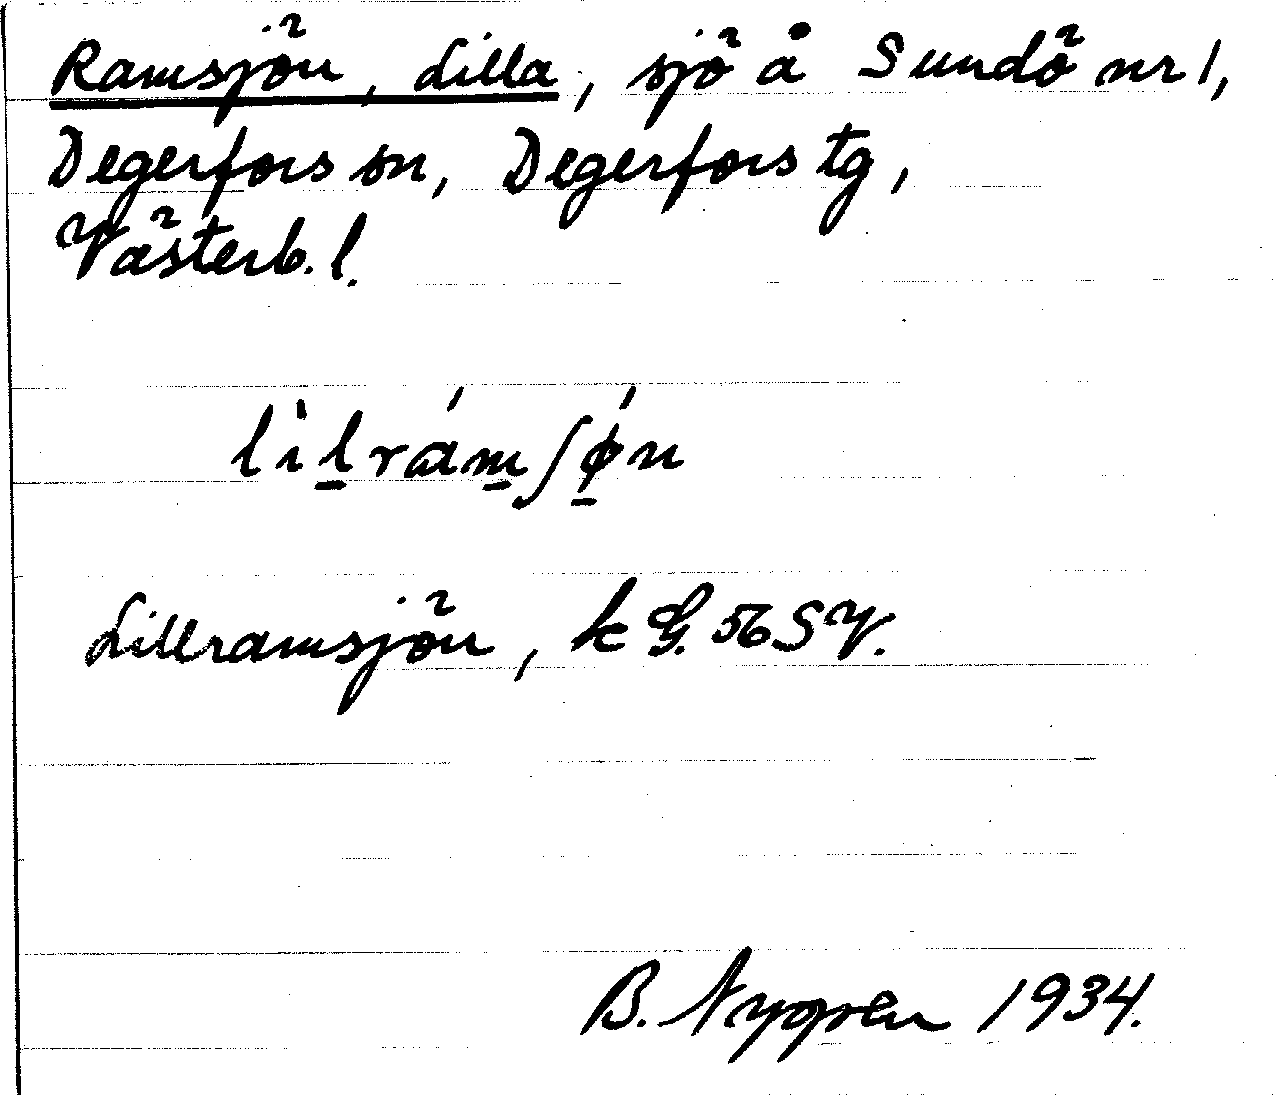 Ramsjön, Lilla, sjö å Sundö nr 1,
Degerfors sn, Degerfors tg,
Västerb. l.
lìl̲rám̲ʃǿ̲n
Lillramsjön, k G. 56 SV.
B. Nygren 1934.